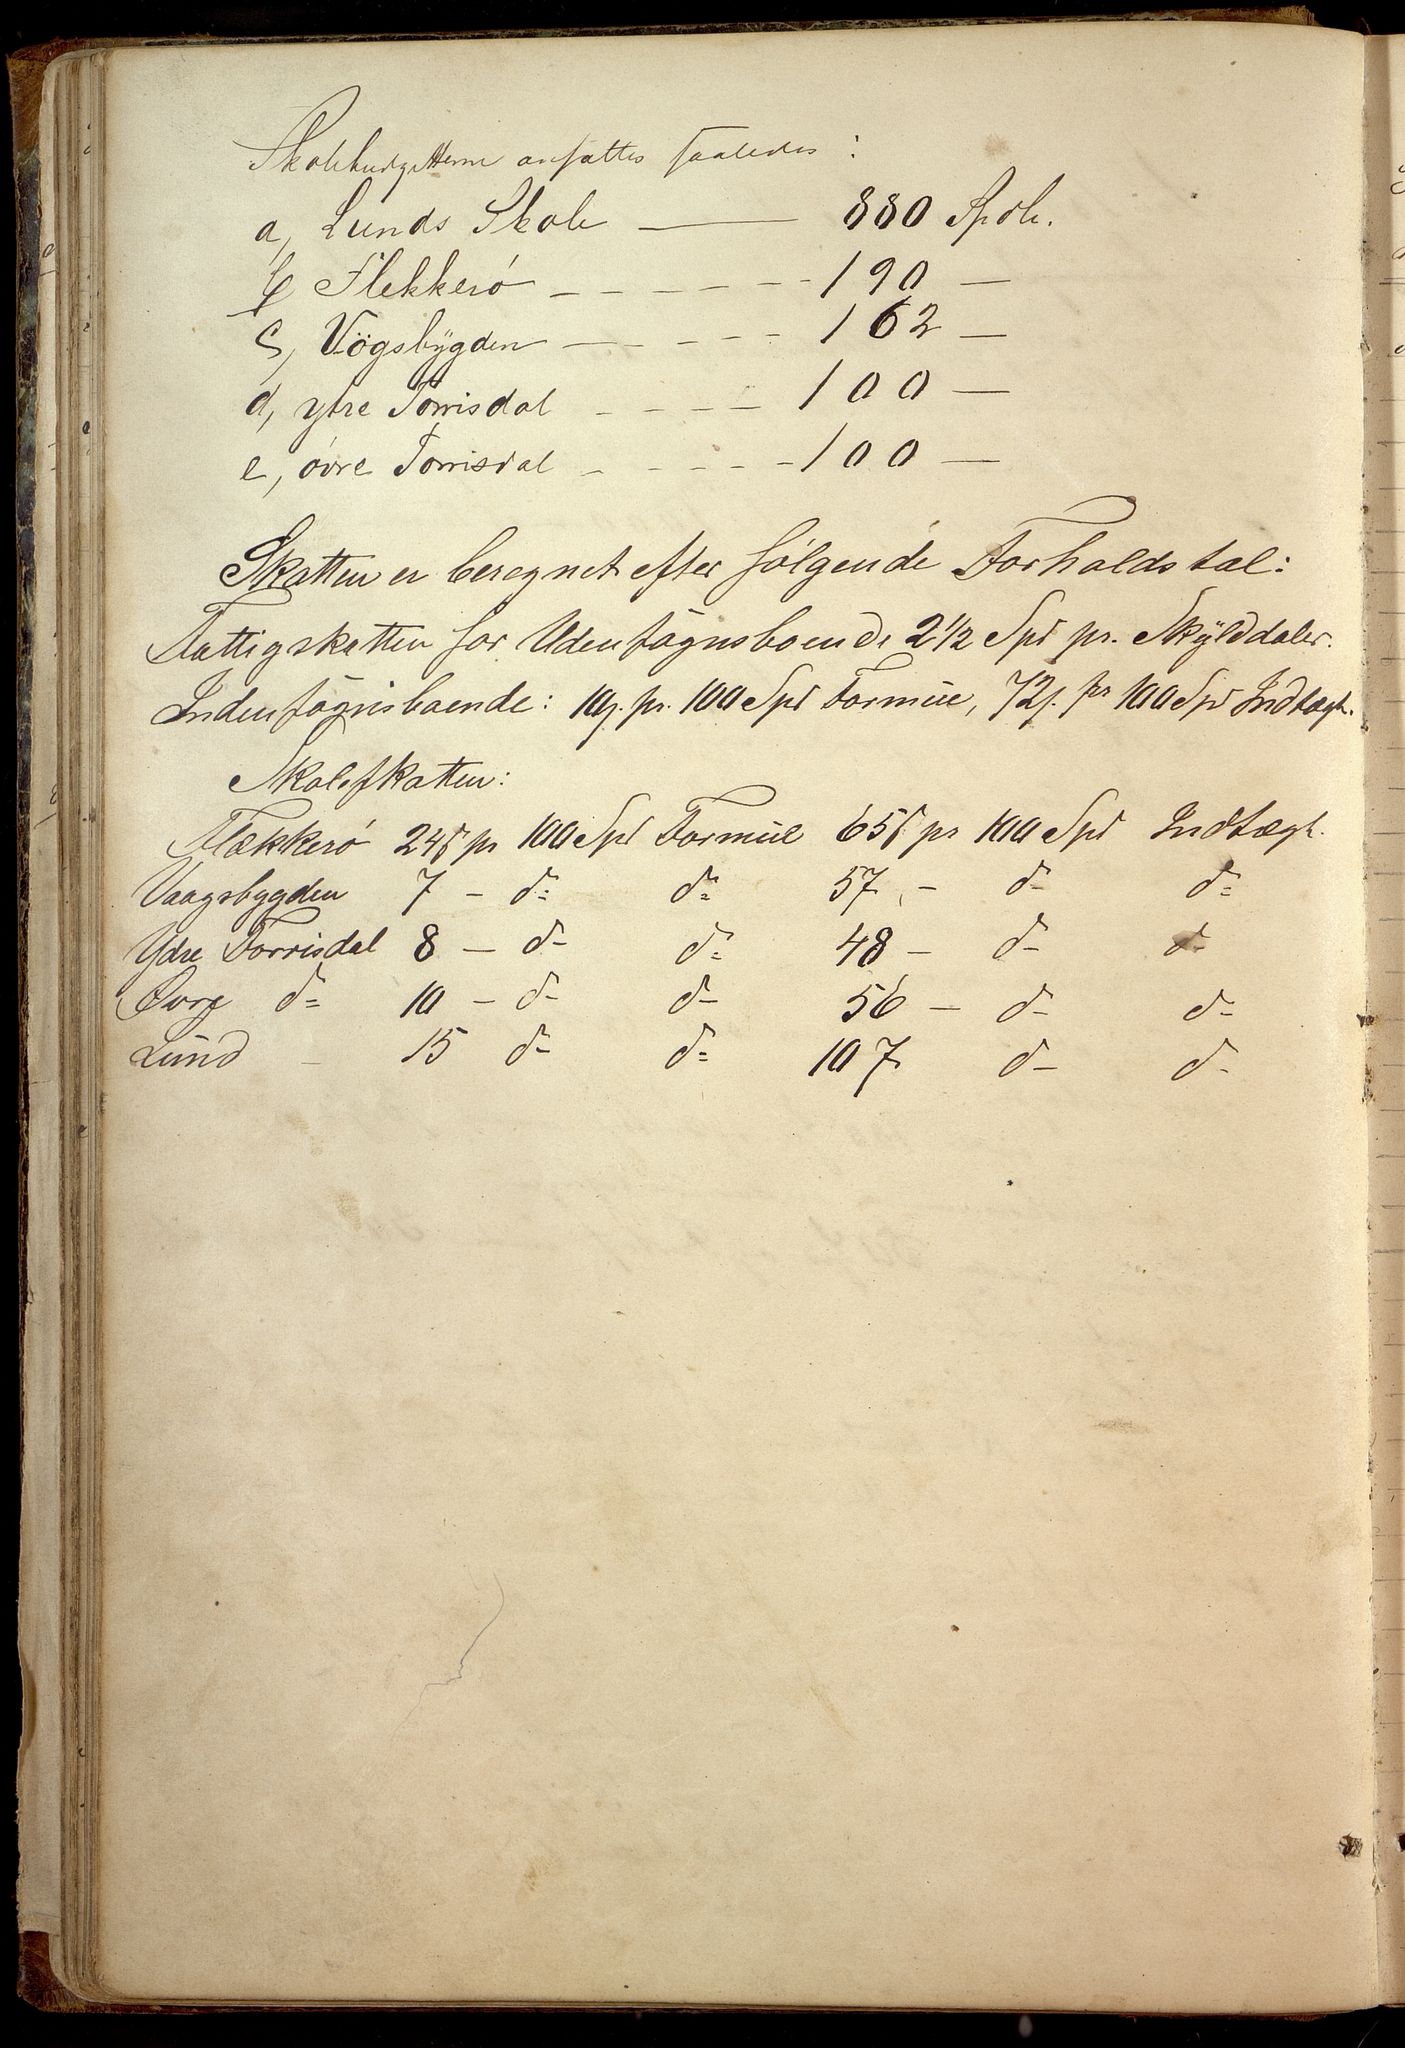 Skolebudgetterne ansattes saaledes:
a, Lunds Skole — 880 Spdlr.
b Flekkerö - - - - - - 190 —
c, Vögsbÿgden — - - - - 162 —
d, ytre Torrisdal - - - — 100 —
e, övre Torrisdal - - - - - 100 —
Skatten er beregnet efter følgende Forholdstal:
Fattigskatten for Udensognsboende 2 1/2 Spd pr. Skÿlddaler.
Indensognsboende: 10 s. pr. 100 Spd Formue, 72 s. pr 100 Spd Indtægt.
Skoleskatten:
Flækkerö 24 s pr 100 Spd Formue 65 s pr 100 Spd Indtægt.
Vaagsbygden 7 - d= d= 57 - d- d=
Ydre Torrisdal 8 - d- d= 48 - d- d-
Øvre d= 10 - d- d- 56 - d- d-
Lund - 15 d- d= 107 d- d-